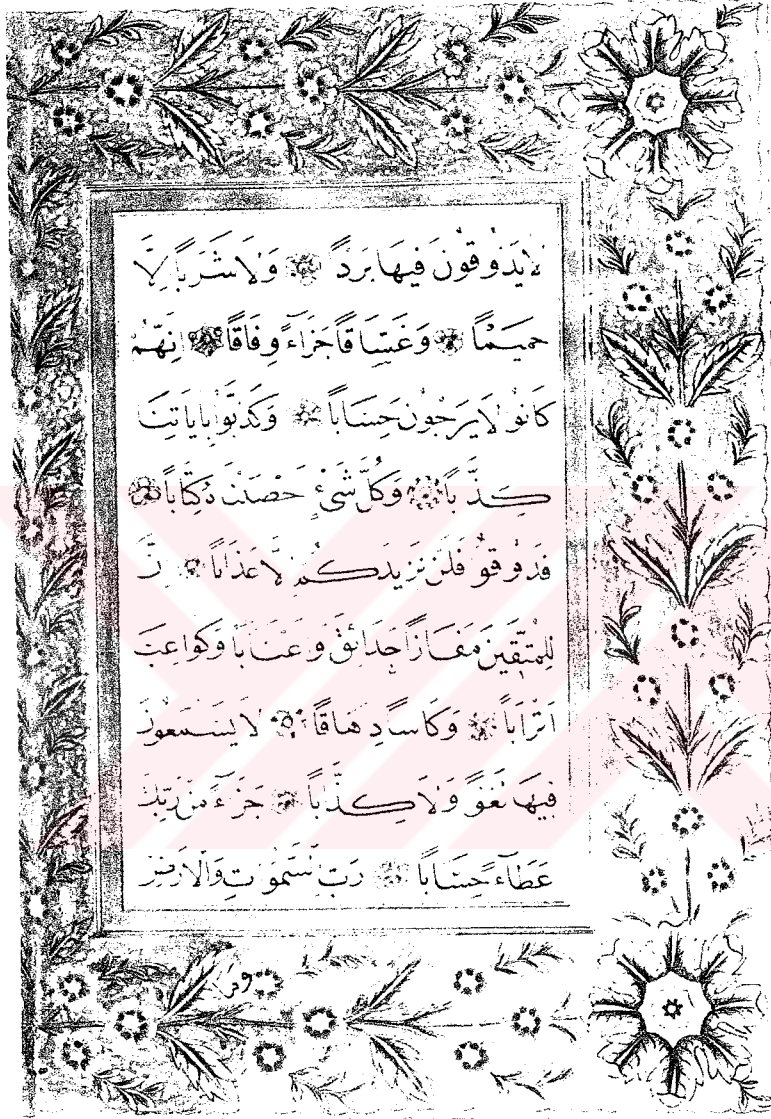 لَا يَذُوقُونَ فِيهَا بَرْدًا وَلَا شَرَابًا اِلَّا
حَمِيمًا وَغَسَّاقًا جَزَاءً وِفَاقًا اِنَّهُمْ
كَانُوا لَا يَرْجُونَ حِسَابًا وَكَذَّبُوا بِاٰيَاتِنَا
كِذَّابًا وَكُلَّ شَیْءٍ اَحْصَيْنَاهُ كِتَابًا
فَذُوقُوا فَلَنْ نَزِيدَكُمْ اِلَّا عَذَابًا اِنَّ
لِلْمُتَّقِينَ مَفَازًا حَدَائِقَ وَاَعْنَابًا وَكَوَاعِبَ
اَتْرَابًا وَكَاْسًا دِهَاقًا لَا يَسْمَعُونَ
فِيهَا لَغْوًا وَلَا كِذَّابًا جَزَاءً مِنْ رَبِّكَ
عَطَاءً حِسَابًا رَبِّ السَّمٰوَاتِ وَالْاَرْضِ
وما